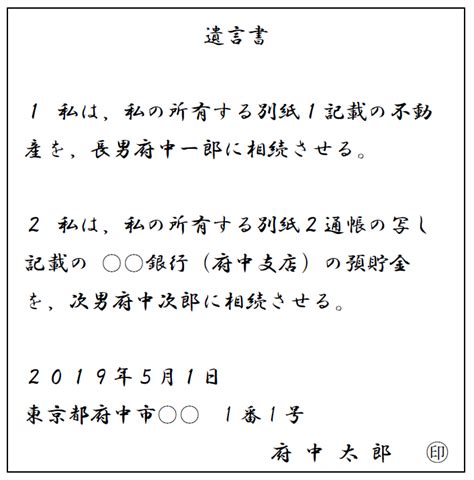 遺言書
1 私は、私の所有する別紙1記載の不動
産を、長男府中一郎に相続させる。
2 私は、私の所有する別紙2通帳の写し
記載の ○○銀行（府中支店）の預貯金
を、次男府中次郎に相続させる。
2019年5月1日
東京都府中市○○ 1番1号
府中太郎 ㊞